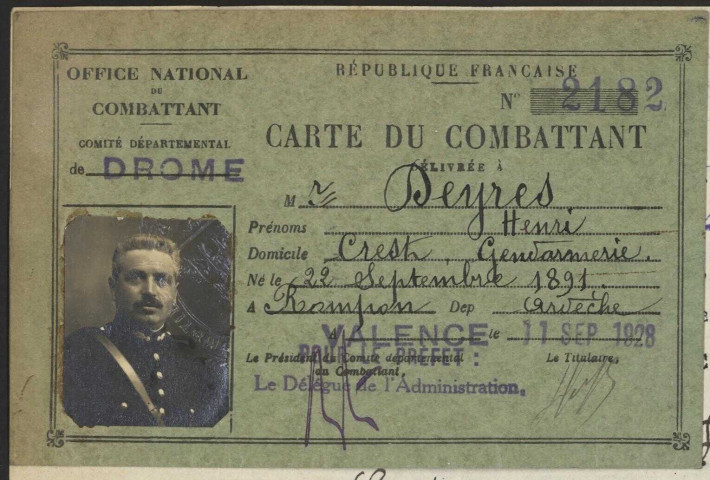 OFFICE NATIONAL
DU
COMBATTANT
COMITÉ DÉPARTEMENTAL
de DROME
RÉPUBLIQUE FRANÇAISE
N° 2182
CARTE DU COMBATTANT
DÉLIVRÉE À
Mr Deyres
Prénoms Henri
Domicile Crest, Gendarmerie.
Né le 22 Septembre 1891.
A Rompon Dep Ardèche
A VALENCE le 11 SEP 1928
POUR LE PREFET :
Le Président du Comité départemental
du Combattant,
Le Titulaire,
Le Délégué de l'Administration.